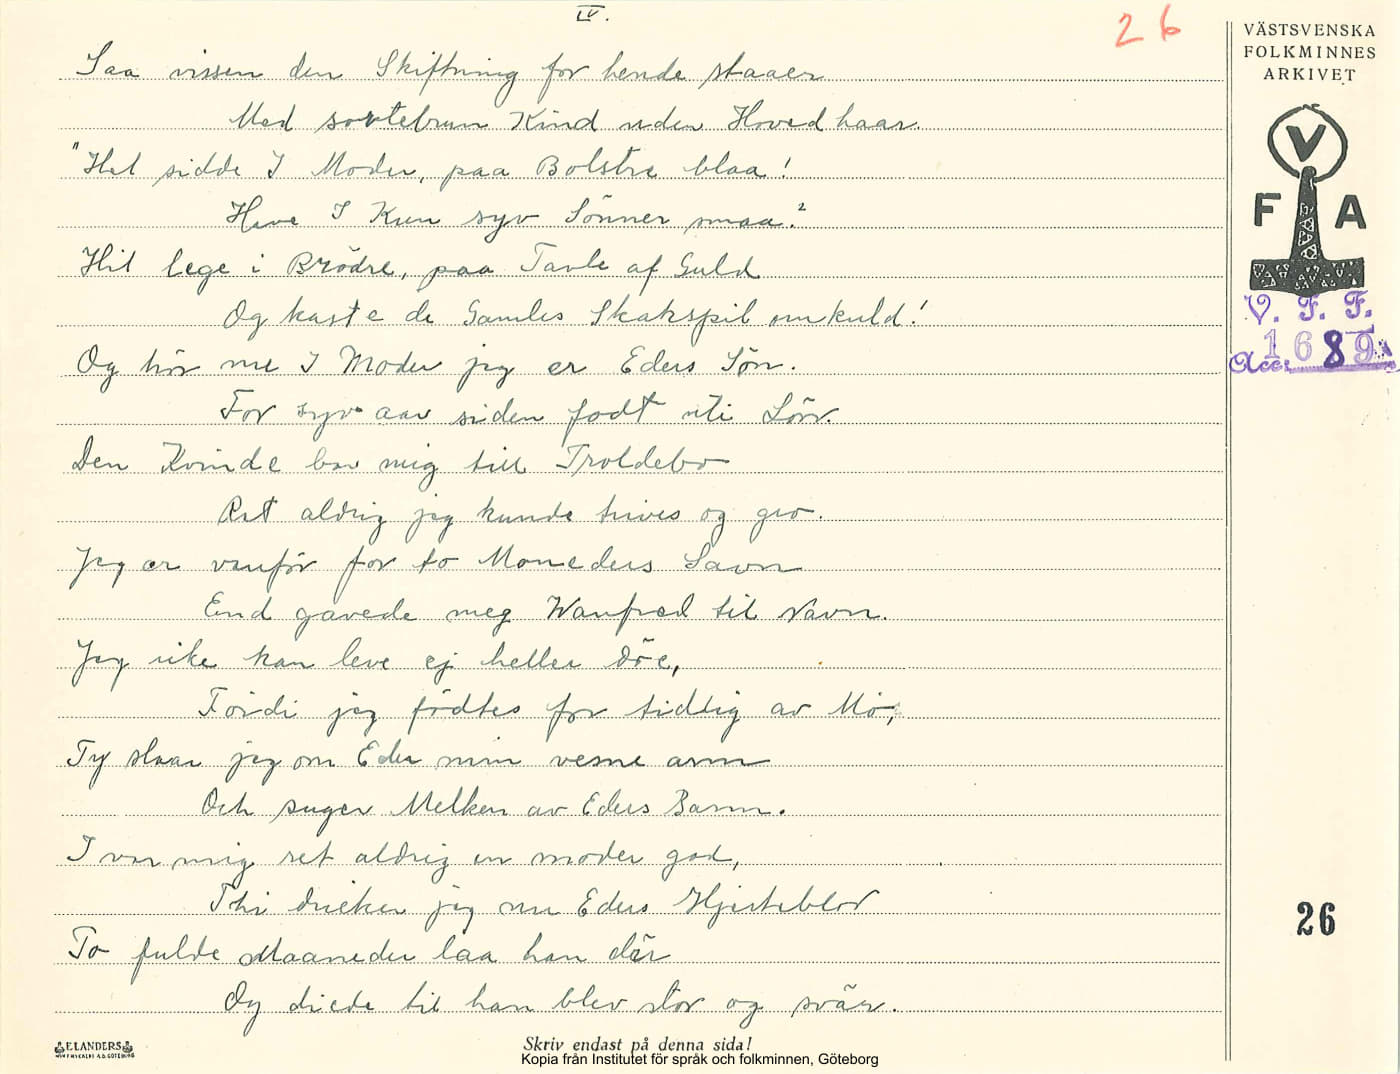 IV.
26
VÄSTSVENSKA
FOLKMINNES
ARKIVET
V
F A
V. F. F.
Acc. 1689
Saa vissen den Skiftning for hende staaer
Med sortebrun Kind uden Hovedhaar.
"Het sidde I Moder, paa Bolstre blaa!
Have I Kun syv Sönner smaa?
Hit lege i Brödre, paa Tavle af Guld
Og kaste de Gamles Skakspil omkuld!
Og hör me I Moder jeg er Eders Sön.
For syv aar siden fodt uti Lön.
Den Kvinde bar mig till Troldebo
Ret aldrig jeg kunde trives og gro.
Jeg er vanför for to Moneders Savn
End gavede meg Wanfred til Navn.
Jeg ike kan leve ej heller döe,
Fordi jeg födtes for tidlig av Mö,
Ty slaar jeg om Eder min vesne arm
Och suger Melken av Eders Barm.
I var mig ret aldrig en moder god,
Thi dricker jeg nu Eders Hjerteblod
To fulde Maaneder laa han där
Og diede til han blev stor og svär.
26
ELANDERS
Skriv endast på denna sida!
Kopia från Institutet för språk och folkminnen, Göteborg